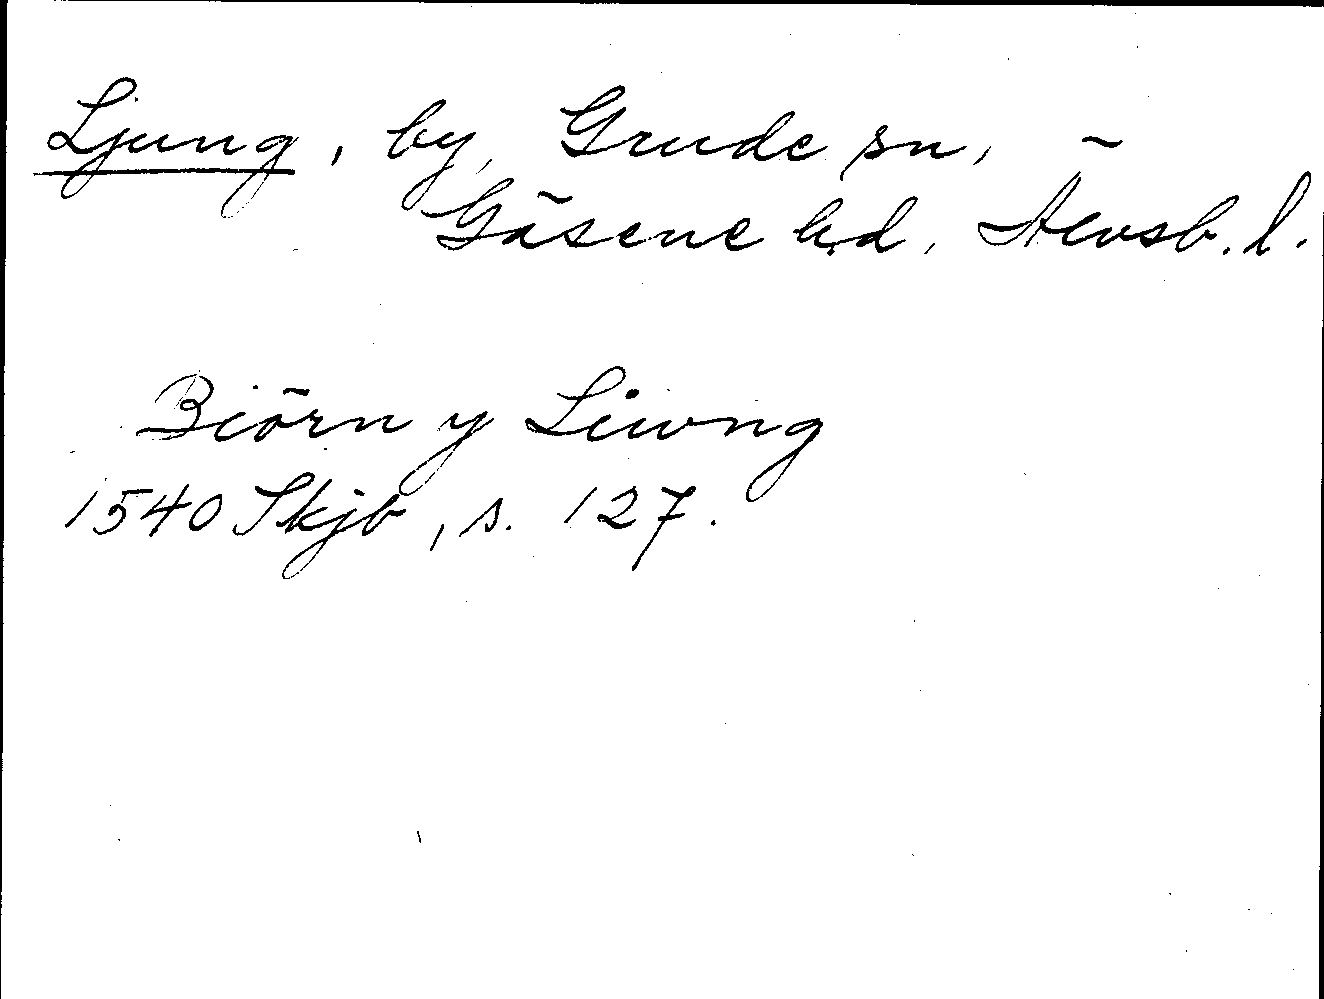 Ljung, by, Grude sn,
Gäsene hd, Älvsb. l.
Biörn y Liwng
1540 Skjb, s. 127.